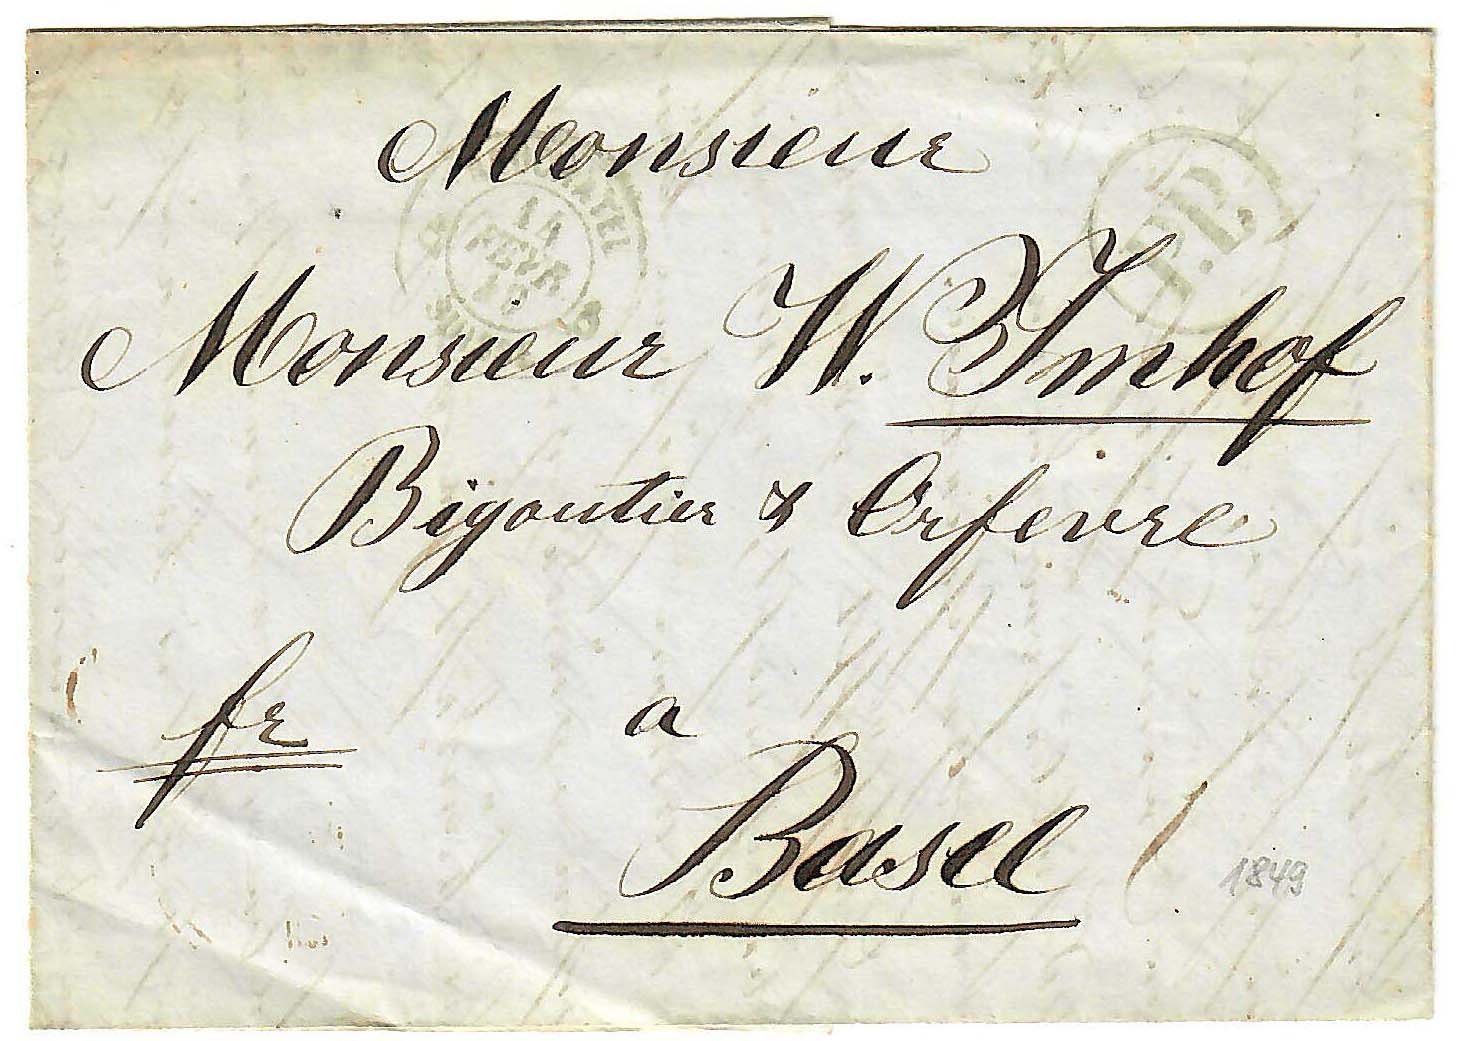 Monsieur
14
FEVR
P.P.
Monsieur W. Imhof
Bigoutier & Orfevre
fr
a
Basel
1849